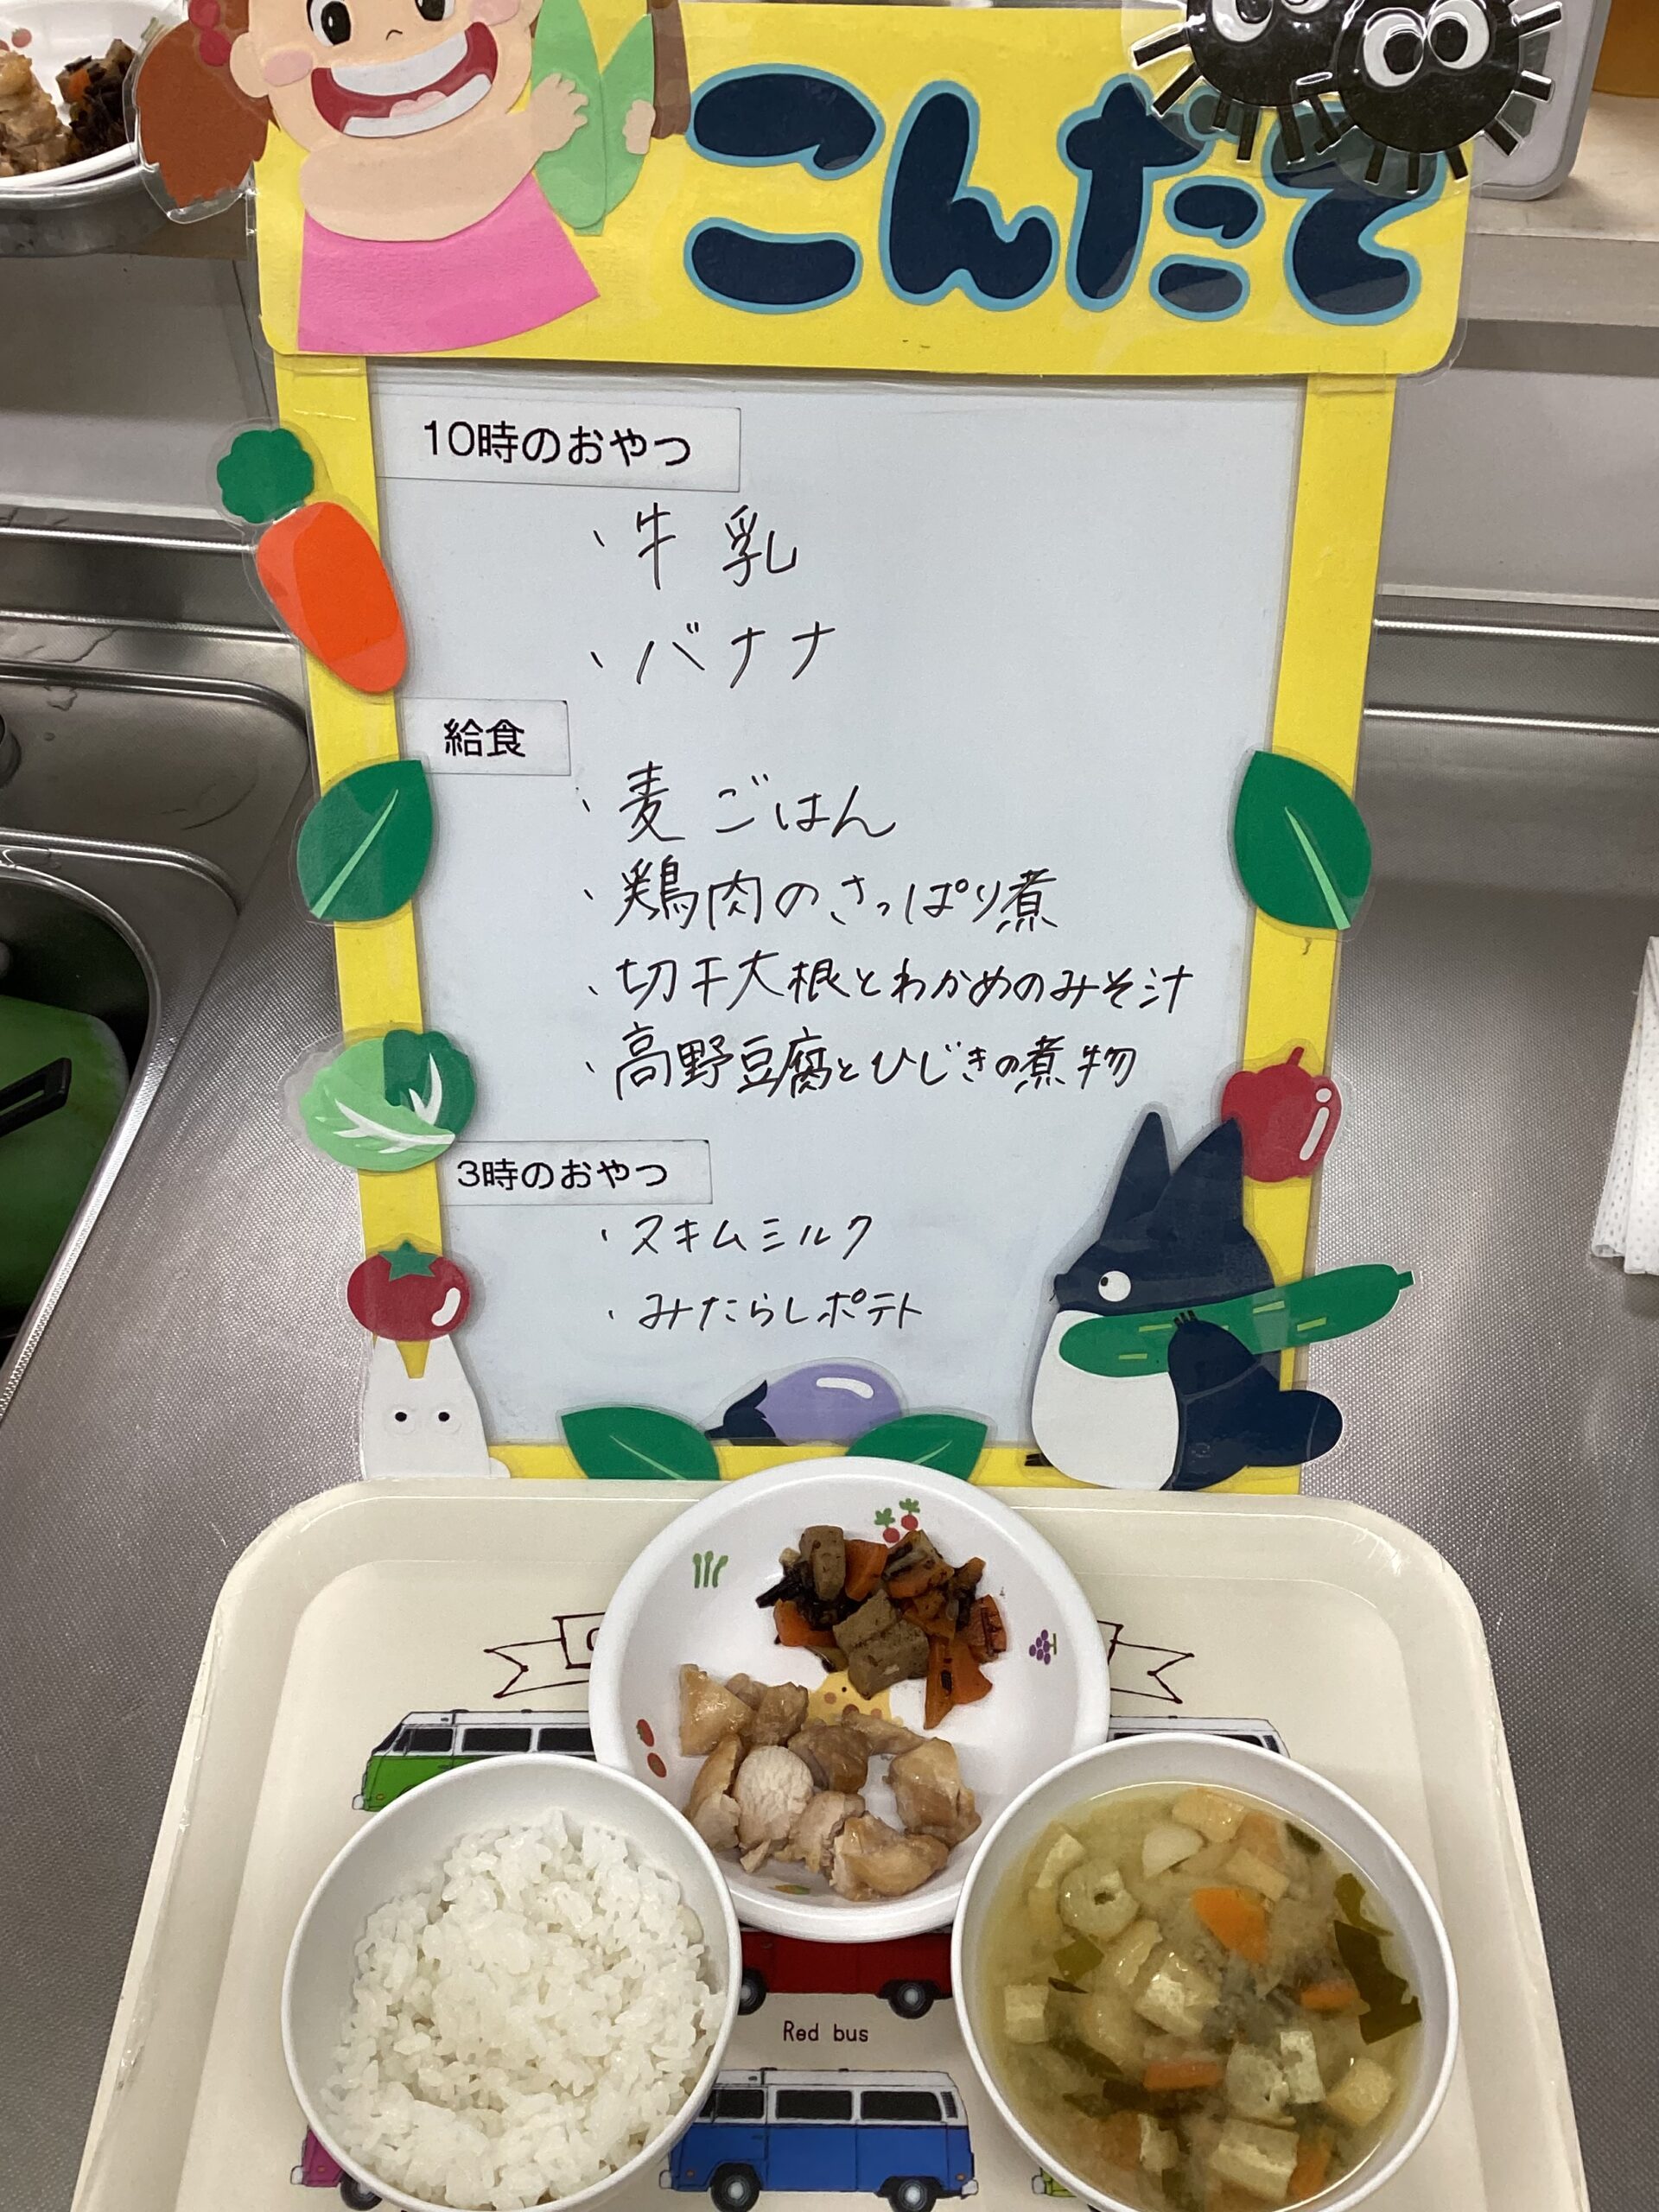 こんだて
10時のおやつ
・牛乳
・バナナ
給食
・麦ごはん
・鶏肉のさっぱり煮
・切干大根とわかめのみそ汁
・高野豆腐とひじきの煮物
3時のおやつ
・スキムミルク
・みたらしポテト
Red bus